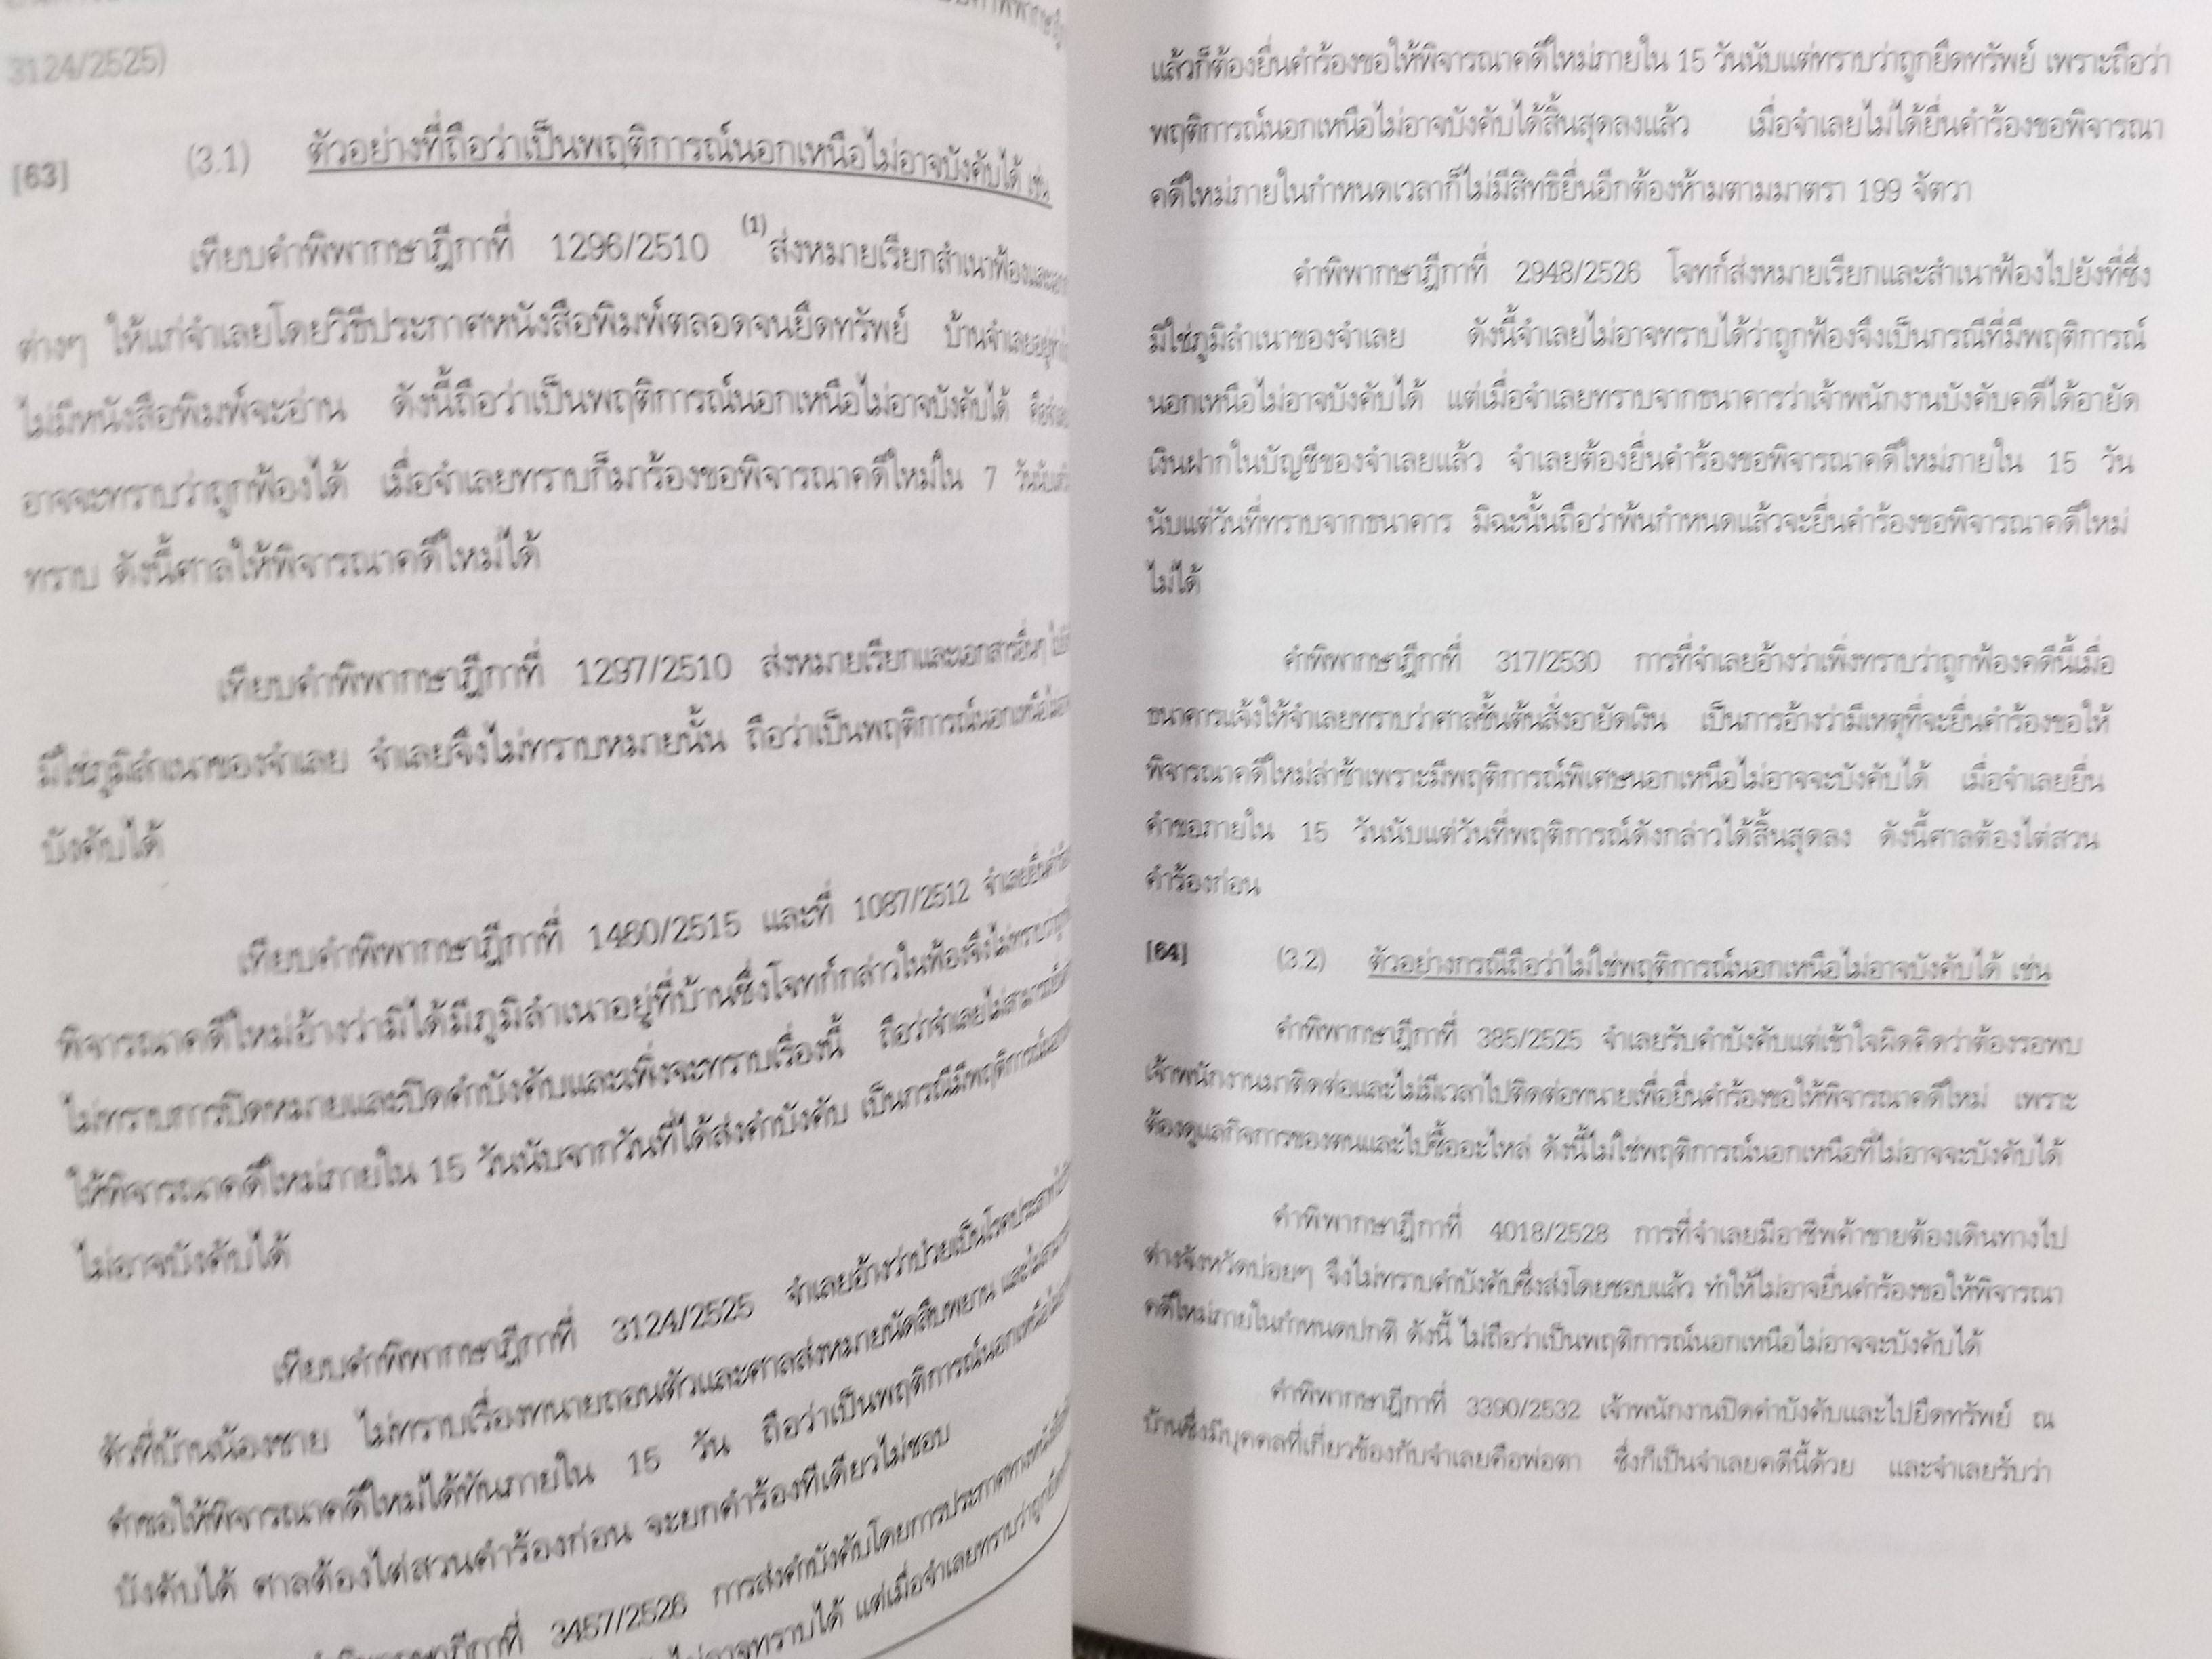 3124/2525)
[63] (3.1) ตัวอย่างที่ถือว่าเป็นพฤติการณ์นอกเหนือไม่อาจบังคับได้ เช่น
เทียบคำพิพากษาฎีกาที่ 1296/2510 (1) ส่งหมายเรียกสำเนาฟ้องและ
ต่างๆ ให้แก่จำเลยโดยวิธีประกาศหนังสือพิมพ์ตลอดจนยึดทรัพย์ บ้านจำเลย
ไม่มีหนังสือพิมพ์จะอ่าน ดังนี้ถือว่าเป็นพฤติการณ์นอกเหนือไม่อาจบังคับได้
อาจจะทราบว่าถูกฟ้องได้ เมื่อจำเลยทราบก็มาร้องขอพิจารณาคดีใหม่ใน 7
ทราบ ดังนี้ศาลให้พิจารณาคดีใหม่ได้
เทียบคำพิพากษาฎีกาที่ 1297/2510 ส่งหมายเรียกและเอกสารอื่นๆ
มิใช่ภูมิลำเนาของจำเลย จำเลยจึงไม่ทราบหมายนั้น ถือว่าเป็นพฤติการณ์นอกเหนือ
บังคับได้
เทียบคำพิพากษาฎีกาที่ 1480/2515 และที่ 1087/2512 จำเลยยื่น
พิจารณาคดีใหม่อ้างว่ามิได้มีภูมิลำเนาอยู่ที่บ้านซึ่งโจทก์กล่าวในฟ้องจึงไม่ทราบ
ไม่ทราบการปิดหมายและปิดคำบังคับและเพิ่งจะทราบเรื่องนี้ ถือว่าจำเลยไม่สามารถ
ให้พิจารณาคดีใหม่ภายใน 15 วันนับจากวันที่ได้ส่งคำบังคับ เป็นกรณีมีพฤติการณ์
ไม่อาจบังคับได้
เทียบคำพิพากษาฎีกาที่ 3124/2525 จำเลยอ้างว่าป่วยเป็นโรคประสาท
ตัวที่บ้านน้องชาย ไม่ทราบเรื่องทนายถอนตัวและศาลส่งหมายนัดสืบพยาน
คำขอให้พิจารณาคดีใหม่ได้ทันภายใน 15 วัน ถือว่าเป็นพฤติการณ์นอกเหนือ
บังคับได้ ศาลต้องไต่สวนคำร้องก่อน จะยกคำร้องทีเดียวไม่ชอบ
3457/2526 การส่งคำบังคับโดยการประกาศทาง
ไม่อาจทราบได้ แต่เมื่อจำเลยทราบว่าถูกยึด
แล้วก็ต้องยื่นคำร้องขอให้พิจารณาคดีใหม่ภายใน 15 วันนับแต่ทราบว่าถูกยึดทรัพย์ เพราะถือว่า
พฤติการณ์นอกเหนือไม่อาจบังคับได้สิ้นสุดลงแล้ว เมื่อจำเลยไม่ได้ยื่นคำร้องขอพิจารณา
คดีใหม่ภายในกำหนดเวลาก็ไม่มีสิทธิยื่นอีกต้องห้ามตามมาตรา 199 จัตวา
คำพิพากษาฎีกาที่ 2948/2526 โจทก์ส่งหมายเรียกและสำเนาฟ้องไปยังที่ซึ่ง
มิใช่ภูมิลำเนาของจำเลย ดังนี้จำเลยไม่อาจทราบได้ว่าถูกฟ้องจึงเป็นกรณีที่มีพฤติการณ์
นอกเหนือไม่อาจบังคับได้ แต่เมื่อจำเลยทราบจากธนาคารว่าเจ้าพนักงานบังคับคดีได้อายัด
เงินฝากในบัญชีของจำเลยแล้ว จำเลยต้องยื่นคำร้องขอพิจารณาคดีใหม่ภายใน 15 วัน
นับแต่วันที่ทราบจากธนาคาร มิฉะนั้นถือว่าพ้นกำหนดแล้วจะยื่นคำร้องขอพิจารณาคดีใหม่
ไม่ได้
คำพิพากษาฎีกาที่ 317/2530 การที่จำเลยอ้างว่าเพิ่งทราบว่าถูกฟ้องคดีนี้เมื่อ
ธนาคารแจ้งให้จำเลยทราบว่าศาลชั้นต้นสั่งอายัดเงิน เป็นการอ้างว่ามีเหตุที่จะยื่นคำร้องขอให้
พิจารณาคดีใหม่ล่าช้าเพราะมีพฤติการณ์พิเศษนอกเหนือไม่อาจจะบังคับได้ เมื่อจำเลยยื่น
คำขอภายใน 15 วันนับแต่วันที่พฤติการณ์ดังกล่าวได้สิ้นสุดลง ดังนี้ศาลต้องไต่สวน
คำร้องก่อน
[64] (3.2) ตัวอย่างกรณีถือว่าไม่ใช่พฤติการณ์นอกเหนือไม่อาจบังคับได้ เช่น
คำพิพากษาฎีกาที่ 385/2525 จำเลยรับคำบังคับแต่เข้าใจผิดคิดว่าต้องรอพบ
เจ้าพนักงานมาติดต่อและไม่มีเวลาไปติดต่อทนายเพื่อยื่นคำร้องขอให้พิจารณาคดีใหม่ เพราะ
ต้องดูแลกิจการของตนและไปซื้ออะไหล่ ดังนี้ไม่ใช่พฤติการณ์นอกเหนือที่ไม่อาจจะบังคับได้
คำพิพากษาฎีกาที่ 4018/2528 การที่จำเลยมีอาชีพค้าขายต้องเดินทางไป
ต่างจังหวัดบ่อยๆ จึงไม่ทราบคำบังคับซึ่งส่งโดยชอบแล้ว ทำให้ไม่อาจยื่นคำร้องขอให้พิจารณา
คดีใหม่ภายในกำหนดปกติ ดังนี้ ไม่ถือว่าเป็นพฤติการณ์นอกเหนือไม่อาจจะบังคับได้
คำพิพากษาฎีกาที่ 3390/2532 เจ้าพนักงานปิดคำบังคับและไปยึดทรัพย์ ณ
บ้านซึ่งมีบุคคลที่เกี่ยวข้องกับจำเลยคือพ่อตา ซึ่งก็เป็นจำเลยคดีนี้ด้วย และจำเลยรับว่า